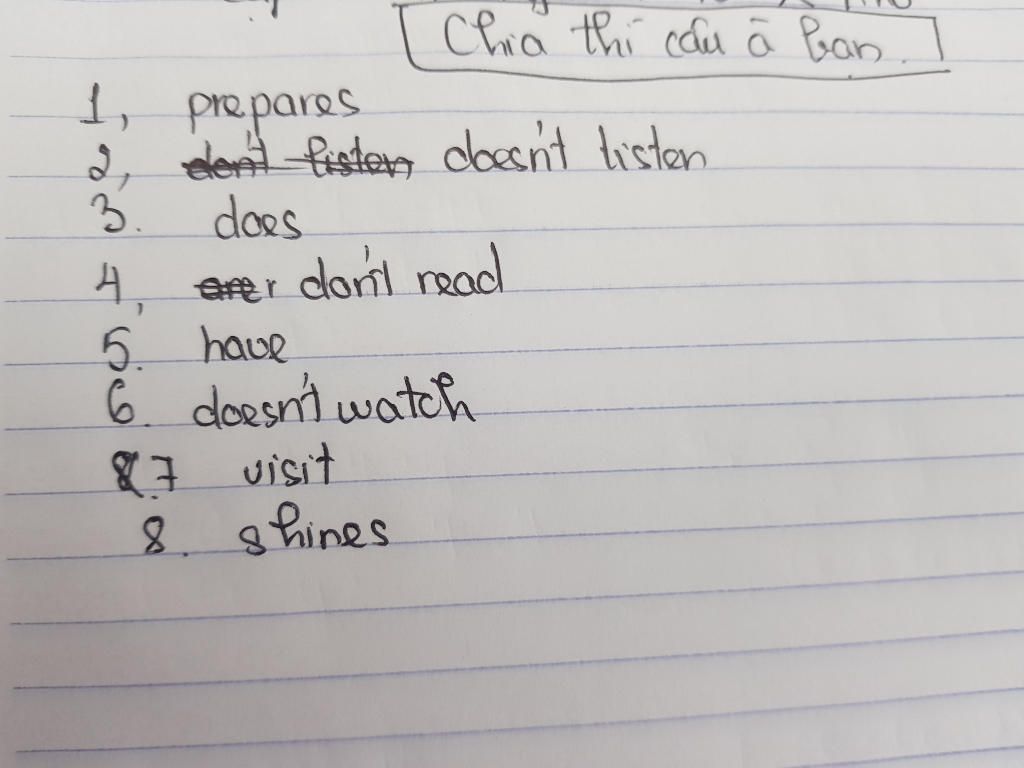 Chia thì câu à bạn.
1, prepares
2, don't listen, doesn't listen
3. does
4, are don't read
5. have
6. doesn't watch
7 visit
8. shines